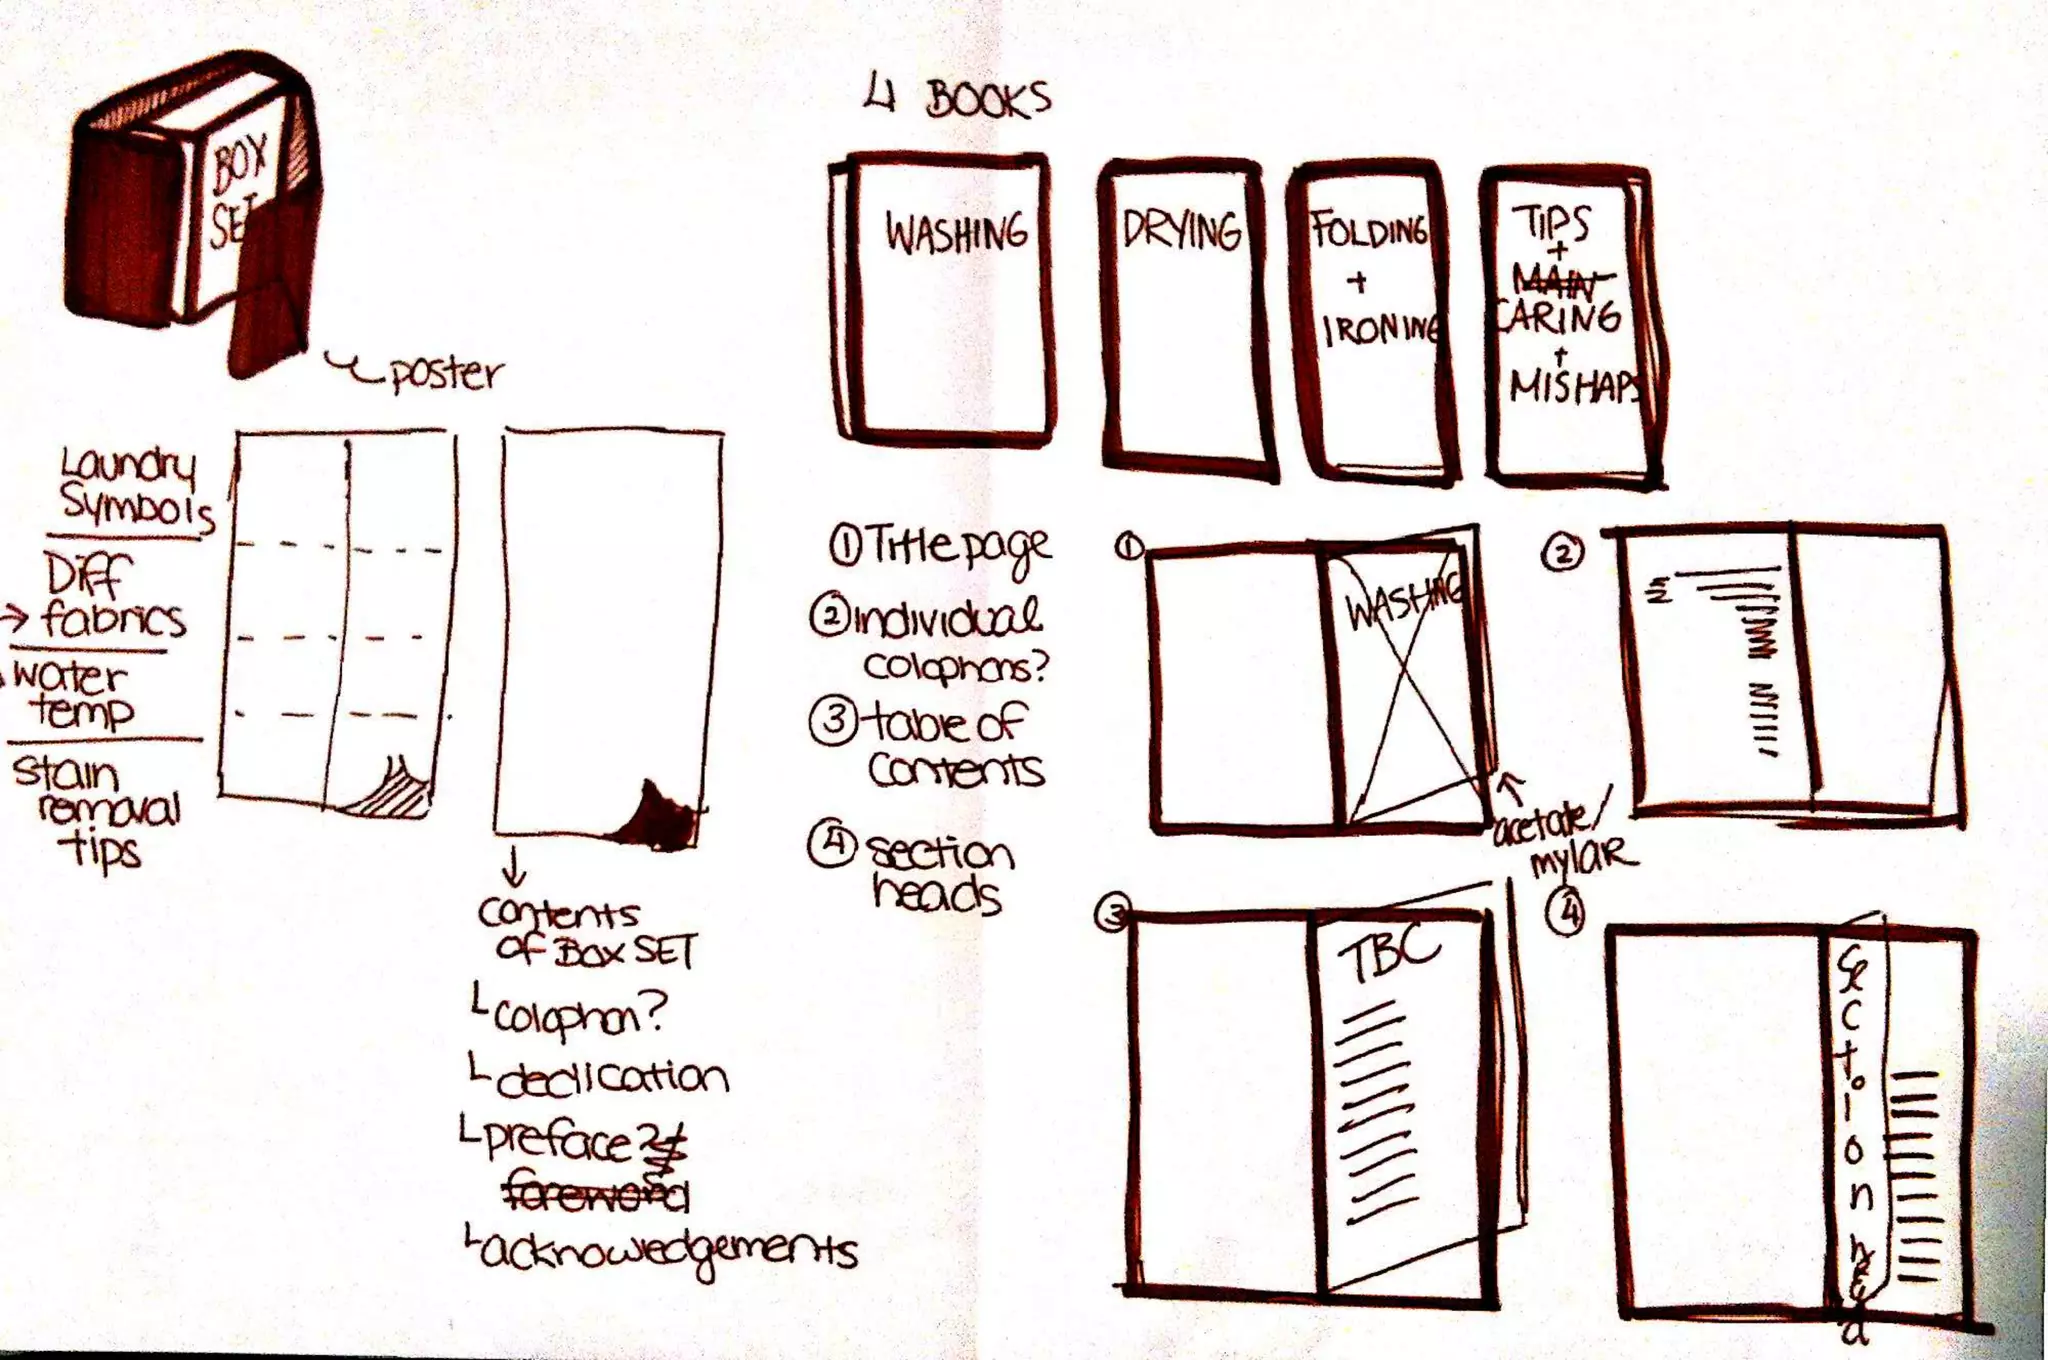 BOX
SET
poster
Laundry
Symbols
Diff
→ fabrics
water
temp
stain
removal
tips
↓
contents
of BOX SET
└ colophon?
└ dedication
└ preface?
foreword
└ acknowledgements
4 BOOKS
WASHING
DRYING
FOLDING
+
IRONING
TIPS
+
MAIN
CARING
+
MISHAPS
① Title page
② individual
colophons?
③ table of
contents
④ section
heads
①
WASHING
acetate/
mylar
②
③
TBC
④
Section head